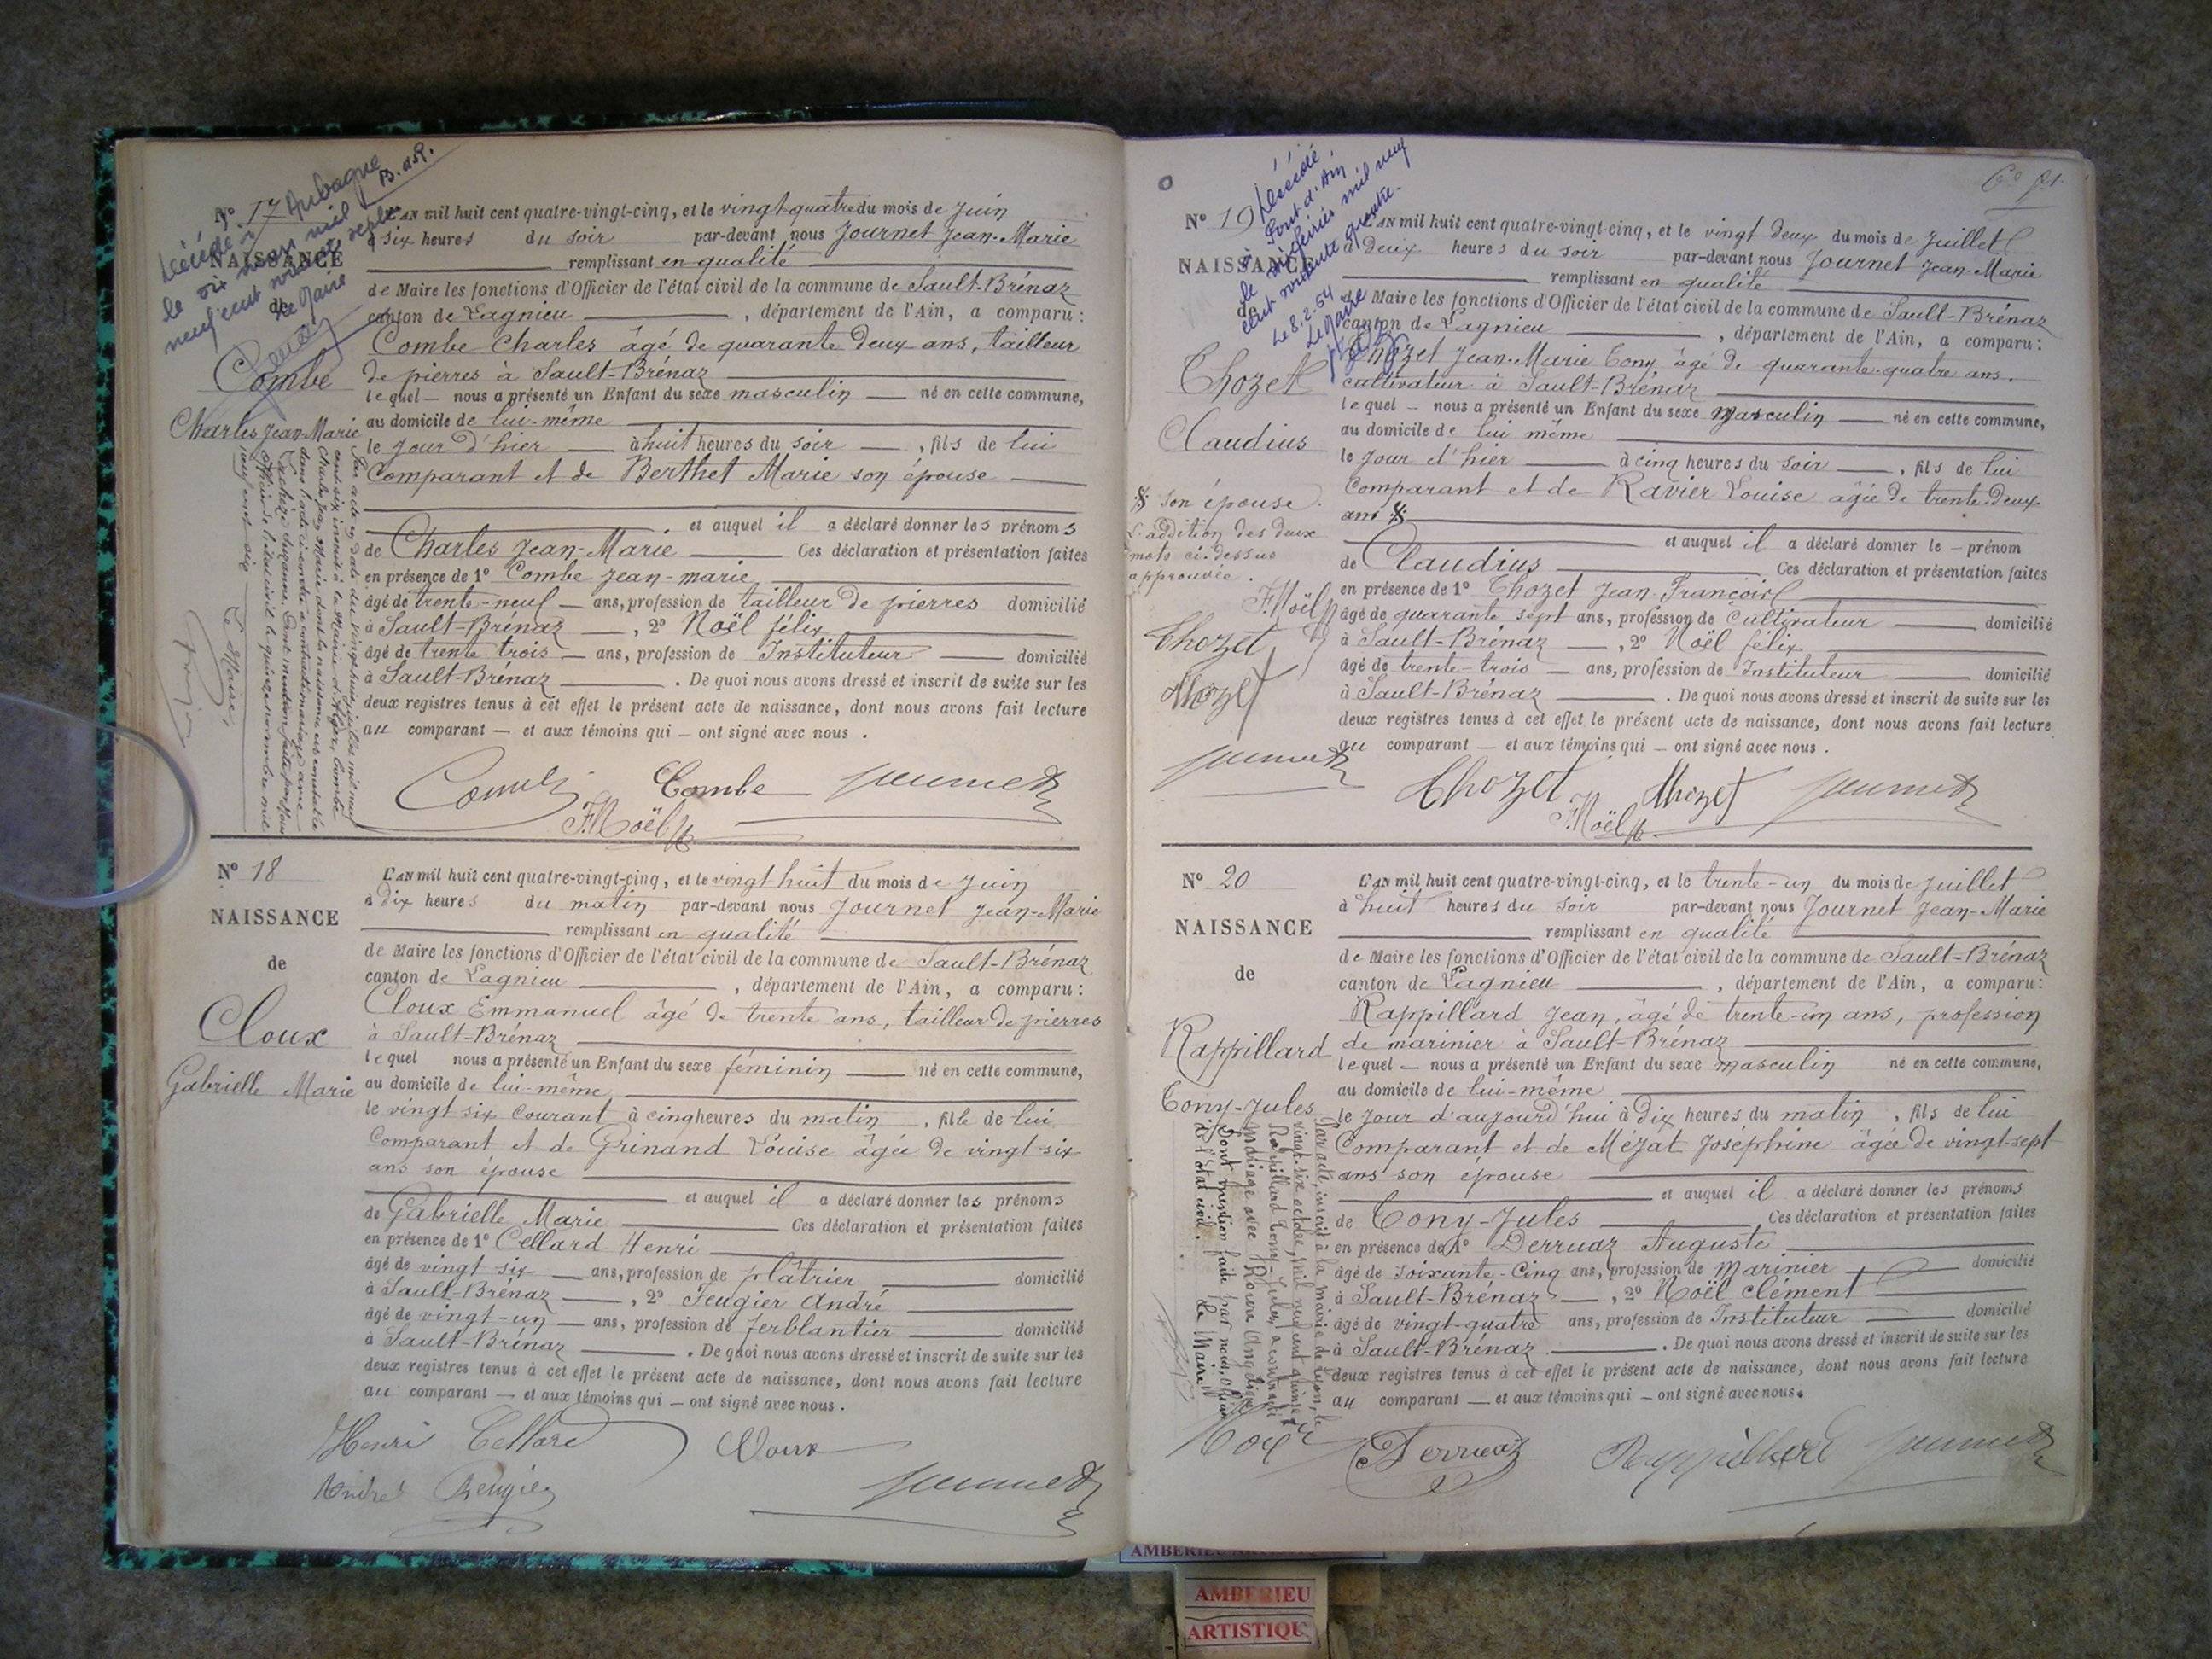 Nº 17
NAISSANCE
de
Combe
Charles Jean-Marie
Décédé à Aubagne
B. d. R.
le dix mars mil
neuf cent soixante sept
Le Maire
L'AN mil huit cent quatre-vingt-cinq, et le vingt-quatre du mois de Juin
à six heures du soir par-devant nous Journet Jean-Marie
remplissant en qualité
de Maire les fonctions d'Officier de l'état civil de la commune de Sault-Brénaz
canton de Lagnieu, département de l'Ain, a comparu :
Combe Charles âgé de quarante deux ans, tailleur
de pierres à Sault-Brénaz
lequel — nous a présenté un Enfant du sexe masculin — né en cette commune,
au domicile de lui-même
le jour d'hier — à huit heures du soir —, fils de lui
Comparant et de Berthet Marie son épouse
et auquel il a déclaré donner les prénoms
de Charles Jean-Marie Ces déclaration et présentation faites
en présence de 1º Combe Jean-marie
âgé de trente-neuf — ans, profession de tailleur de pierres domicilié
à Sault-Brénaz —, 2º Noël félix
âgé de trente trois — ans, profession de Instituteur domicilié
à Sault-Brénaz. De quoi nous avons dressé et inscrit de suite sur les
deux registres tenus à cet effet le présent acte de naissance, dont nous avons fait lecture
au comparant — et aux témoins qui — ont signé avec nous.
Par acte en date du vingt huit juillet mil neuf
cent six inscrit à la Mairie d'Alger, Combe
Charles Jean Marie dont la naissance est constatée
dans l'acte ci-contre a contracté mariage avec
Suzanne. Dont mention faite par Nous
Officier de l'état civil le quinze novembre mil
neuf cent six
Le Maire,
Combe
Journet
F. Noël
Nº 18
NAISSANCE
de
Cloux
Gabrielle Marie
L'AN mil huit cent quatre-vingt-cinq, et le vingt huit du mois de Juin
à dix heures du matin par-devant nous Journet Jean-Marie
remplissant en qualité
de Maire les fonctions d'Officier de l'état civil de la commune de Sault-Brénaz
canton de Lagnieu, département de l'Ain, a comparu :
Cloux Emmanuel âgé de trente ans, tailleur de pierres
à Sault-Brénaz
lequel nous a présenté un Enfant du sexe féminin — né en cette commune,
au domicile de lui-même
le vingt six Courant à cinq heures du matin, fille de lui
Comparant et de Grinand Louise âgée de vingt-six
ans son épouse
et auquel il a déclaré donner les prénoms
de Gabrielle Marie Ces déclaration et présentation faites
en présence de 1º Cellard Henri
âgé de vingt six — ans, profession de plâtrier domicilié
à Sault-Brénaz —, 2º Feugier André
âgé de vingt-un — ans, profession de ferblantier domicilié
à Sault-Brénaz. De quoi nous avons dressé et inscrit de suite sur les
deux registres tenus à cet effet le présent acte de naissance, dont nous avons fait lecture
au comparant — et aux témoins qui — ont signé avec nous.
Henri Cellard Cloux
André Feugier Journet
Nº 19
NAISSANCE
de
Chozet
Claudius
Décédé
à Pont d'Ain
le six février mil neuf
cent cinquante quatre.
Le 8.2.54
Le Maire
L'AN mil huit cent quatre-vingt-cinq, et le vingt deux du mois de Juillet
à Deux heures du soir par-devant nous Journet Jean-Marie
remplissant en qualité
de Maire les fonctions d'Officier de l'état civil de la commune de Sault-Brénaz
canton de Lagnieu, département de l'Ain, a comparu :
Chozet Jean-Marie Tony âgé de quarante-quatre ans.
cultivateur à Sault-Brénaz
lequel — nous a présenté un Enfant du sexe masculin — né en cette commune,
au domicile de lui même
le jour d'hier — à cinq heures du soir —, fils de lui
Comparant et de Ravier Louise âgée de trente-deux
ans
et auquel il a déclaré donner le — prénom
de Claudius Ces déclaration et présentation faites
en présence de 1º Chozet Jean-François
âgé de quarante sept ans, profession de Cultivateur domicilié
à Sault-Brénaz —, 2º Noël félix
âgé de trente-trois — ans, profession de Instituteur domicilié
à Sault-Brénaz. De quoi nous avons dressé et inscrit de suite sur les
deux registres tenus à cet effet le présent acte de naissance, dont nous avons fait lecture
au comparant — et aux témoins qui — ont signé avec nous.
son épouse.
L'addition des deux
mots ci-dessus
approuvée.
F. Noël
Chozet
Chozet
Journet
Chozet Chozet Journet
F. Noël
Nº 20
NAISSANCE
de
Rappillard
Tony-Jules
L'AN mil huit cent quatre-vingt-cinq, et le trente-un du mois de Juillet
à huit heures du soir par-devant nous Journet Jean-Marie
remplissant en qualité
de Maire les fonctions d'Officier de l'état civil de la commune de Sault-Brénaz
canton de Lagnieu, département de l'Ain, a comparu :
Rappillard Jean, âgé de trente-un ans, profession
de marinier à Sault-Brénaz
lequel — nous a présenté un Enfant du sexe masculin né en cette commune,
au domicile de lui-même
le jour d'aujourd'hui à Dix heures du matin, fils de lui
Comparant et de Mézat Joséphine âgée de vingt-sept
ans son épouse
et auquel il a déclaré donner les prénoms
de Tony-Jules Ces déclaration et présentation faites
en présence de 1º Derruaz Auguste
âgé de soixante-Cinq ans, profession de Marinier domicilié
à Sault-Brénaz —, 2º Noël Clément
âgé de vingt-quatre ans, profession de Instituteur domicilié
à Sault-Brénaz. De quoi nous avons dressé et inscrit de suite sur les
deux registres tenus à cet effet le présent acte de naissance, dont nous avons fait lecture
au comparant — et aux témoins qui — ont signé avec nous.
Par acte, inscrit à la mairie de Lyon, le
vingt-six octobre, mil neuf cent quinze,
Rappillard Tony-Jules, a contracté
mariage avec Angélique
Dont mention faite par nous, Officier
de l'état civil. Le Maire
Noël
Derruaz Rappillard Journet
AMBERIEU
ARTISTIQU